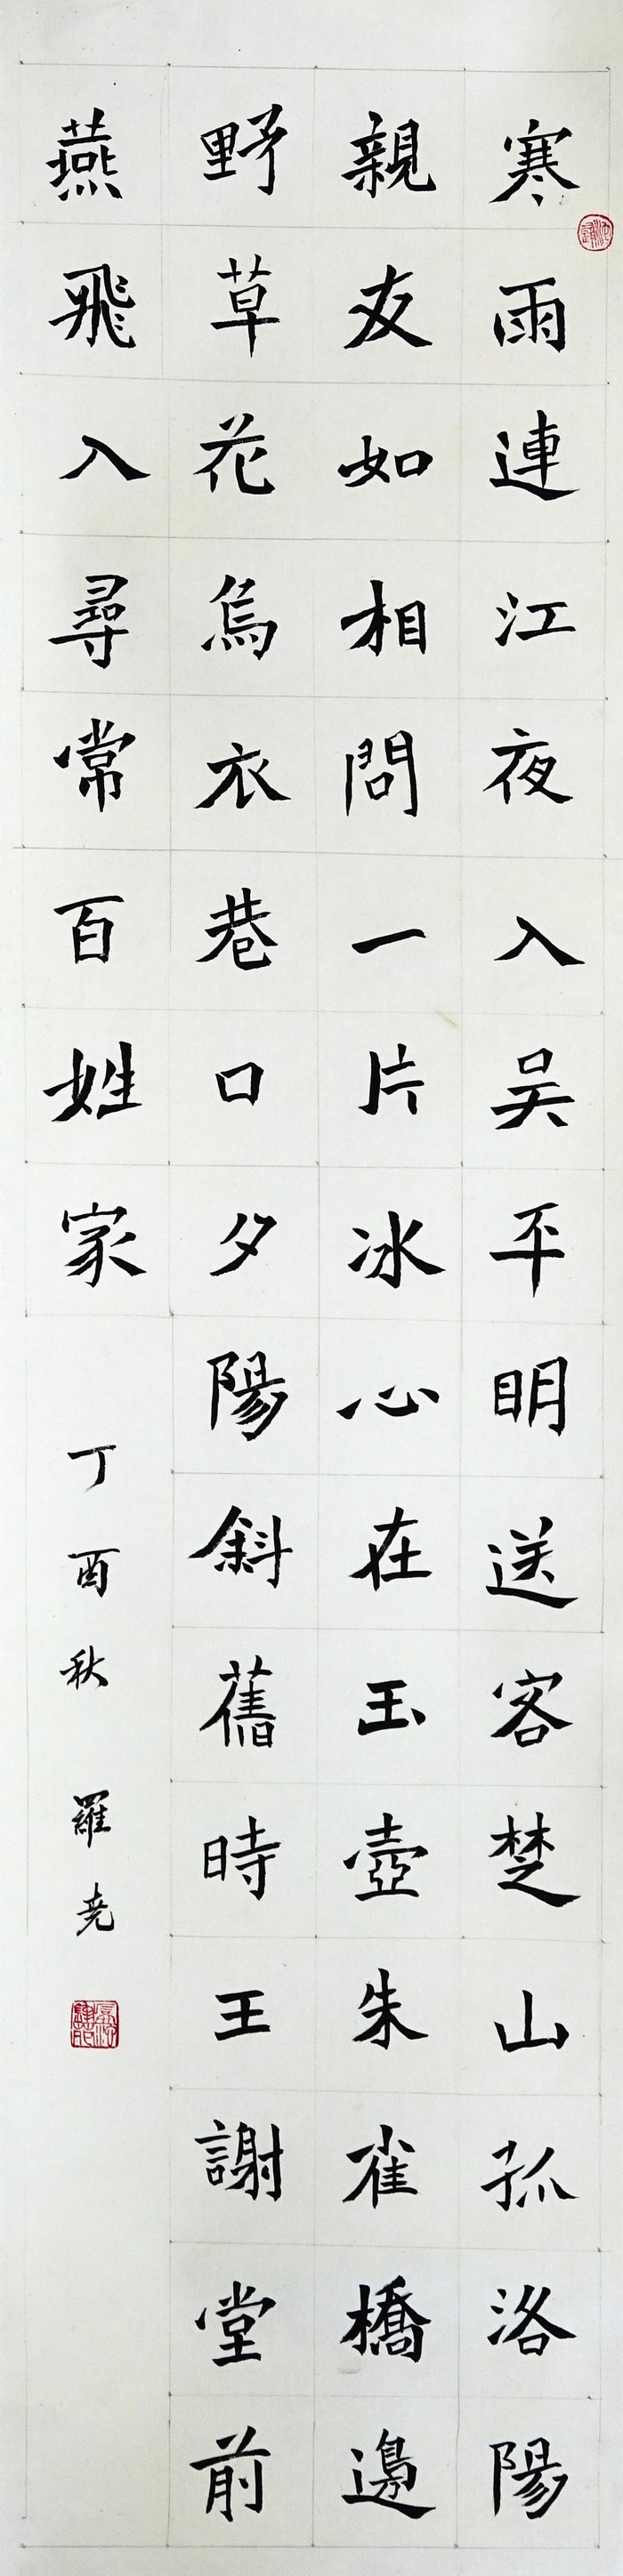 寒雨連江夜入吳平明送客楚山孤洛陽
親友如相問一片冰心在玉壺朱雀橋邊
野草花烏衣巷口夕陽斜舊時王謝堂前
燕飛入尋常百姓家
丁酉秋 羅尭